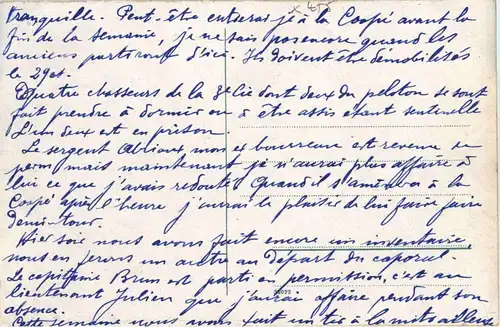 tranquille. Peut-être entrerai-je à la Coopé avant la
fin de la semaine, je ne sais pas encore quand les
anciens partiront d'ici. Ils doivent être démobilisés
le 29 ct.
Quatre chasseurs de la 3e Cie dont deux du peloton se sont
fait prendre à dormir ou à être assis étant sentinelle
L'un deux est en prison.
Le sergent mon ex bourreau est revenu de
perm mais maintenant je n'aurai plus affaire à
lui ce que j'avais redouté. Quand il s'amènera à la
Coopé après l'heure j'aurai le plaisir de lui faire faire
demi-tour.
Hier soir nous avons fait encore un inventaire,
nous en ferons un autre au départ du caporal.
Le capitaine Brun est parti en permission, c'est au
lieutenant Julien que j'aurai affaire pendant son
absence.
Cette semaine nous avons fait un tir à la mitrailleuse